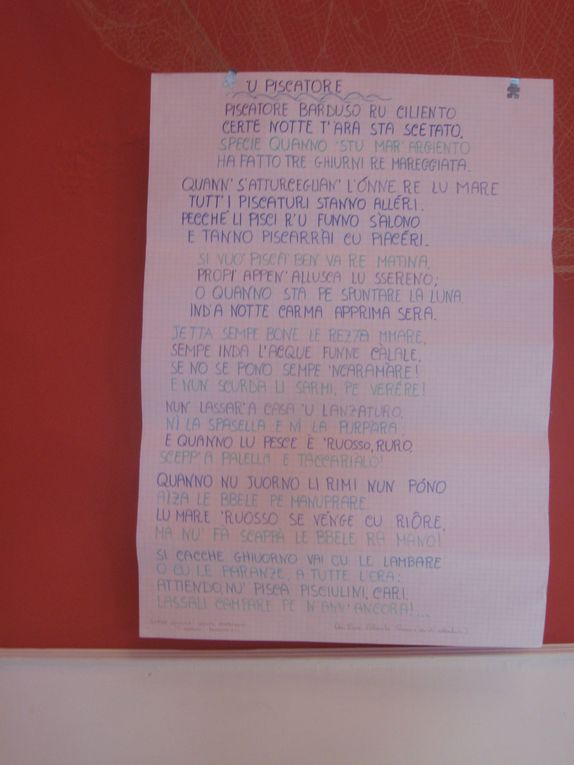 'U PISCATORE
PISCATORE BARDUSO RU CILIENTO
CERTE NOTTE T'ARA STA SCETATO,
SPECIE QUANNO 'STU MAR' ARGIENTO
HA FATTO TRE GHIURNI RE MAREGGIATA.
QUANN' S'ATTURCEGLIAN' L'ÓNNE RE LU MARE
TUTT' I PISCATURI STANNO ALLÉRI.
PECCHÉ LI PISCI R'U FUNNO S'ÀLONO
E TANNO PISCARRÀI CU PIACÉRI.
SI VUO' PISCÀ BEN' VA RE MATINA,
PROPI' APPEN' ALLUSCA LU SSERENO;
O QUANNO STA PE SPUNTARE LA LUNA
IND'A NOTTE CARMA APPRIMA SERA.
JETTA SEMPE BONE LE REZZA MMARE,
SEMPE INDA L'ACQUE FUNNE CÀLALE,
SE NO SE PONO SEMPE 'NCARAMÀRE!
E NUN SCURDÀ LI SARMI, PE VERÉRE!
NUN LASSAR' A CASA 'U LANZATURO,
NÌ LA SPASELLA E NÌ LA PURPARA,
E QUANNO LU PESCE È 'RUOSSO, RURO,
SCEPP' A PALELLA E TACCARIALO!
QUANNO NU JUORNO LI RIMI NUN PÓNO
AIZA LE BBELE PE MANUPRARE
LU MARE 'RUOSSO SE VÉNGE CU RIÓRE,
MA NU' FÀ SCAPPÀ LE BBELE RA MANO!
SI CACCHE GHIUORNO VAI CU LE LAMBARE
O CU LE PARANZE, A TUTTE L'ORA;
ATTIENDO, NU' PISCÀ PISCIULINI, CARI,
LASSALI CAMPARE PE N'ANN' ANCORA!...